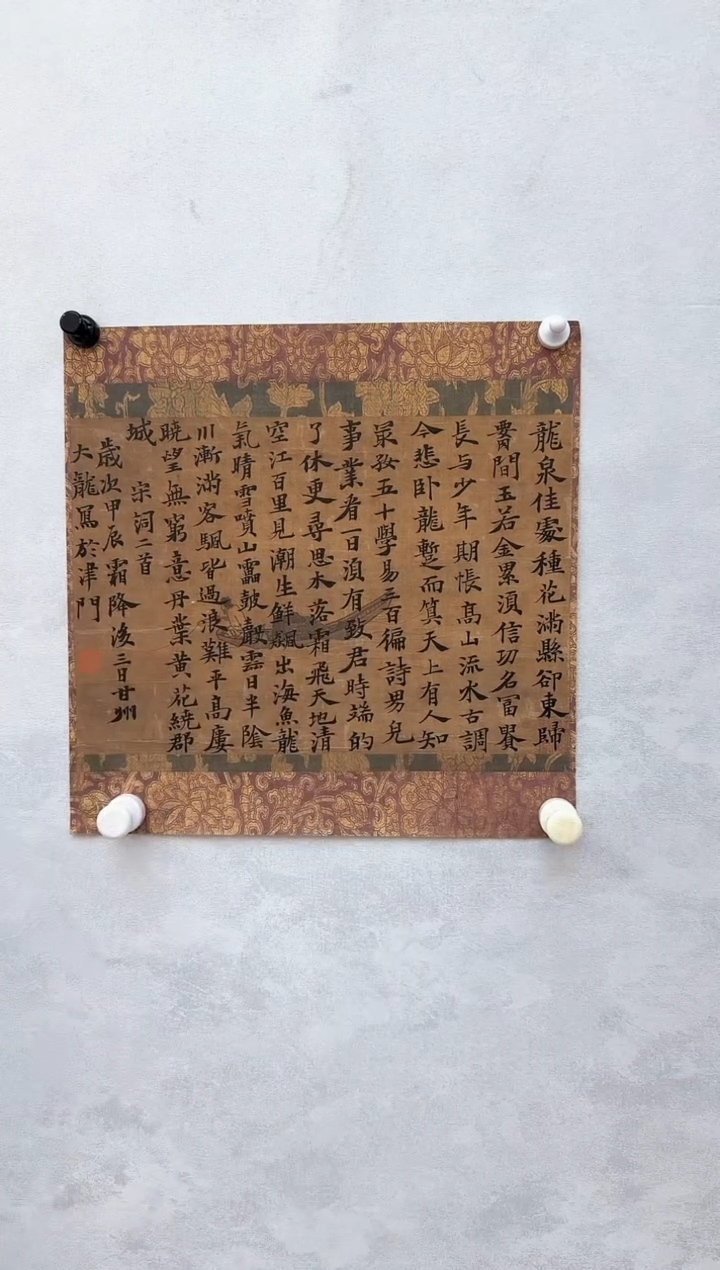 龍泉佳處種花滿縣卻東歸
間玉若金累湏信功名冨貴
長与少年期悵髙山流水古調
今悲卧龍蹔而筭天上有人知
最好五十學易三百徧詩男兒
事業看一日湏有致君時端的
了休更尋思木落霜飛天地清
空江百里見潮生鮮飊出海魚龍
氣晴雪噴山靁皷聲雲日半陰
川漸滿客颿皆過浪難平髙廔
曉望無窮意丹葉黄花繞郡
城 宋詞二首
歳次甲辰霜降後三日甘州
大龍寫於津門